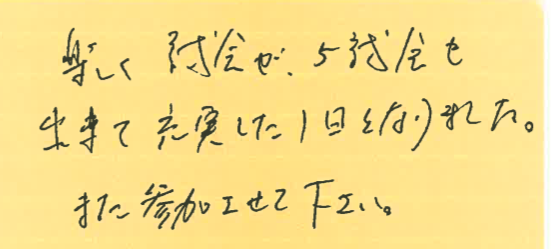 楽しく試合が、5試合も
出来て充実した1日となりました。
また参加させて下さい。